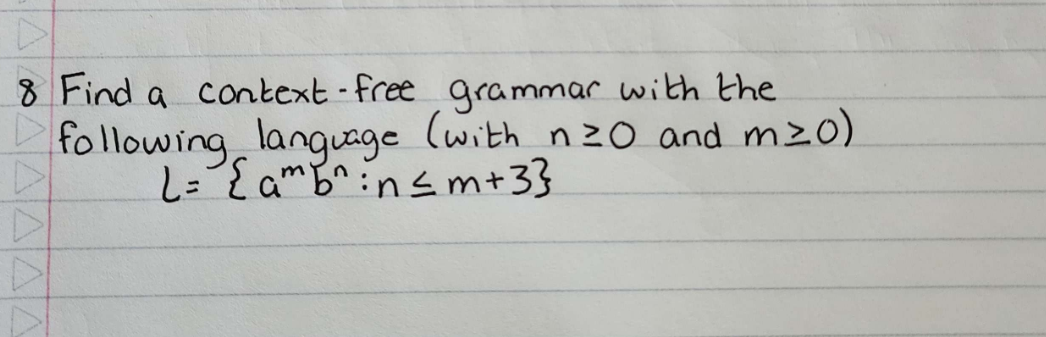 8 Find a context-free grammar with the
following language (with n≥0 and m≥0)
L= {aᵐbⁿ:n≤m+3}